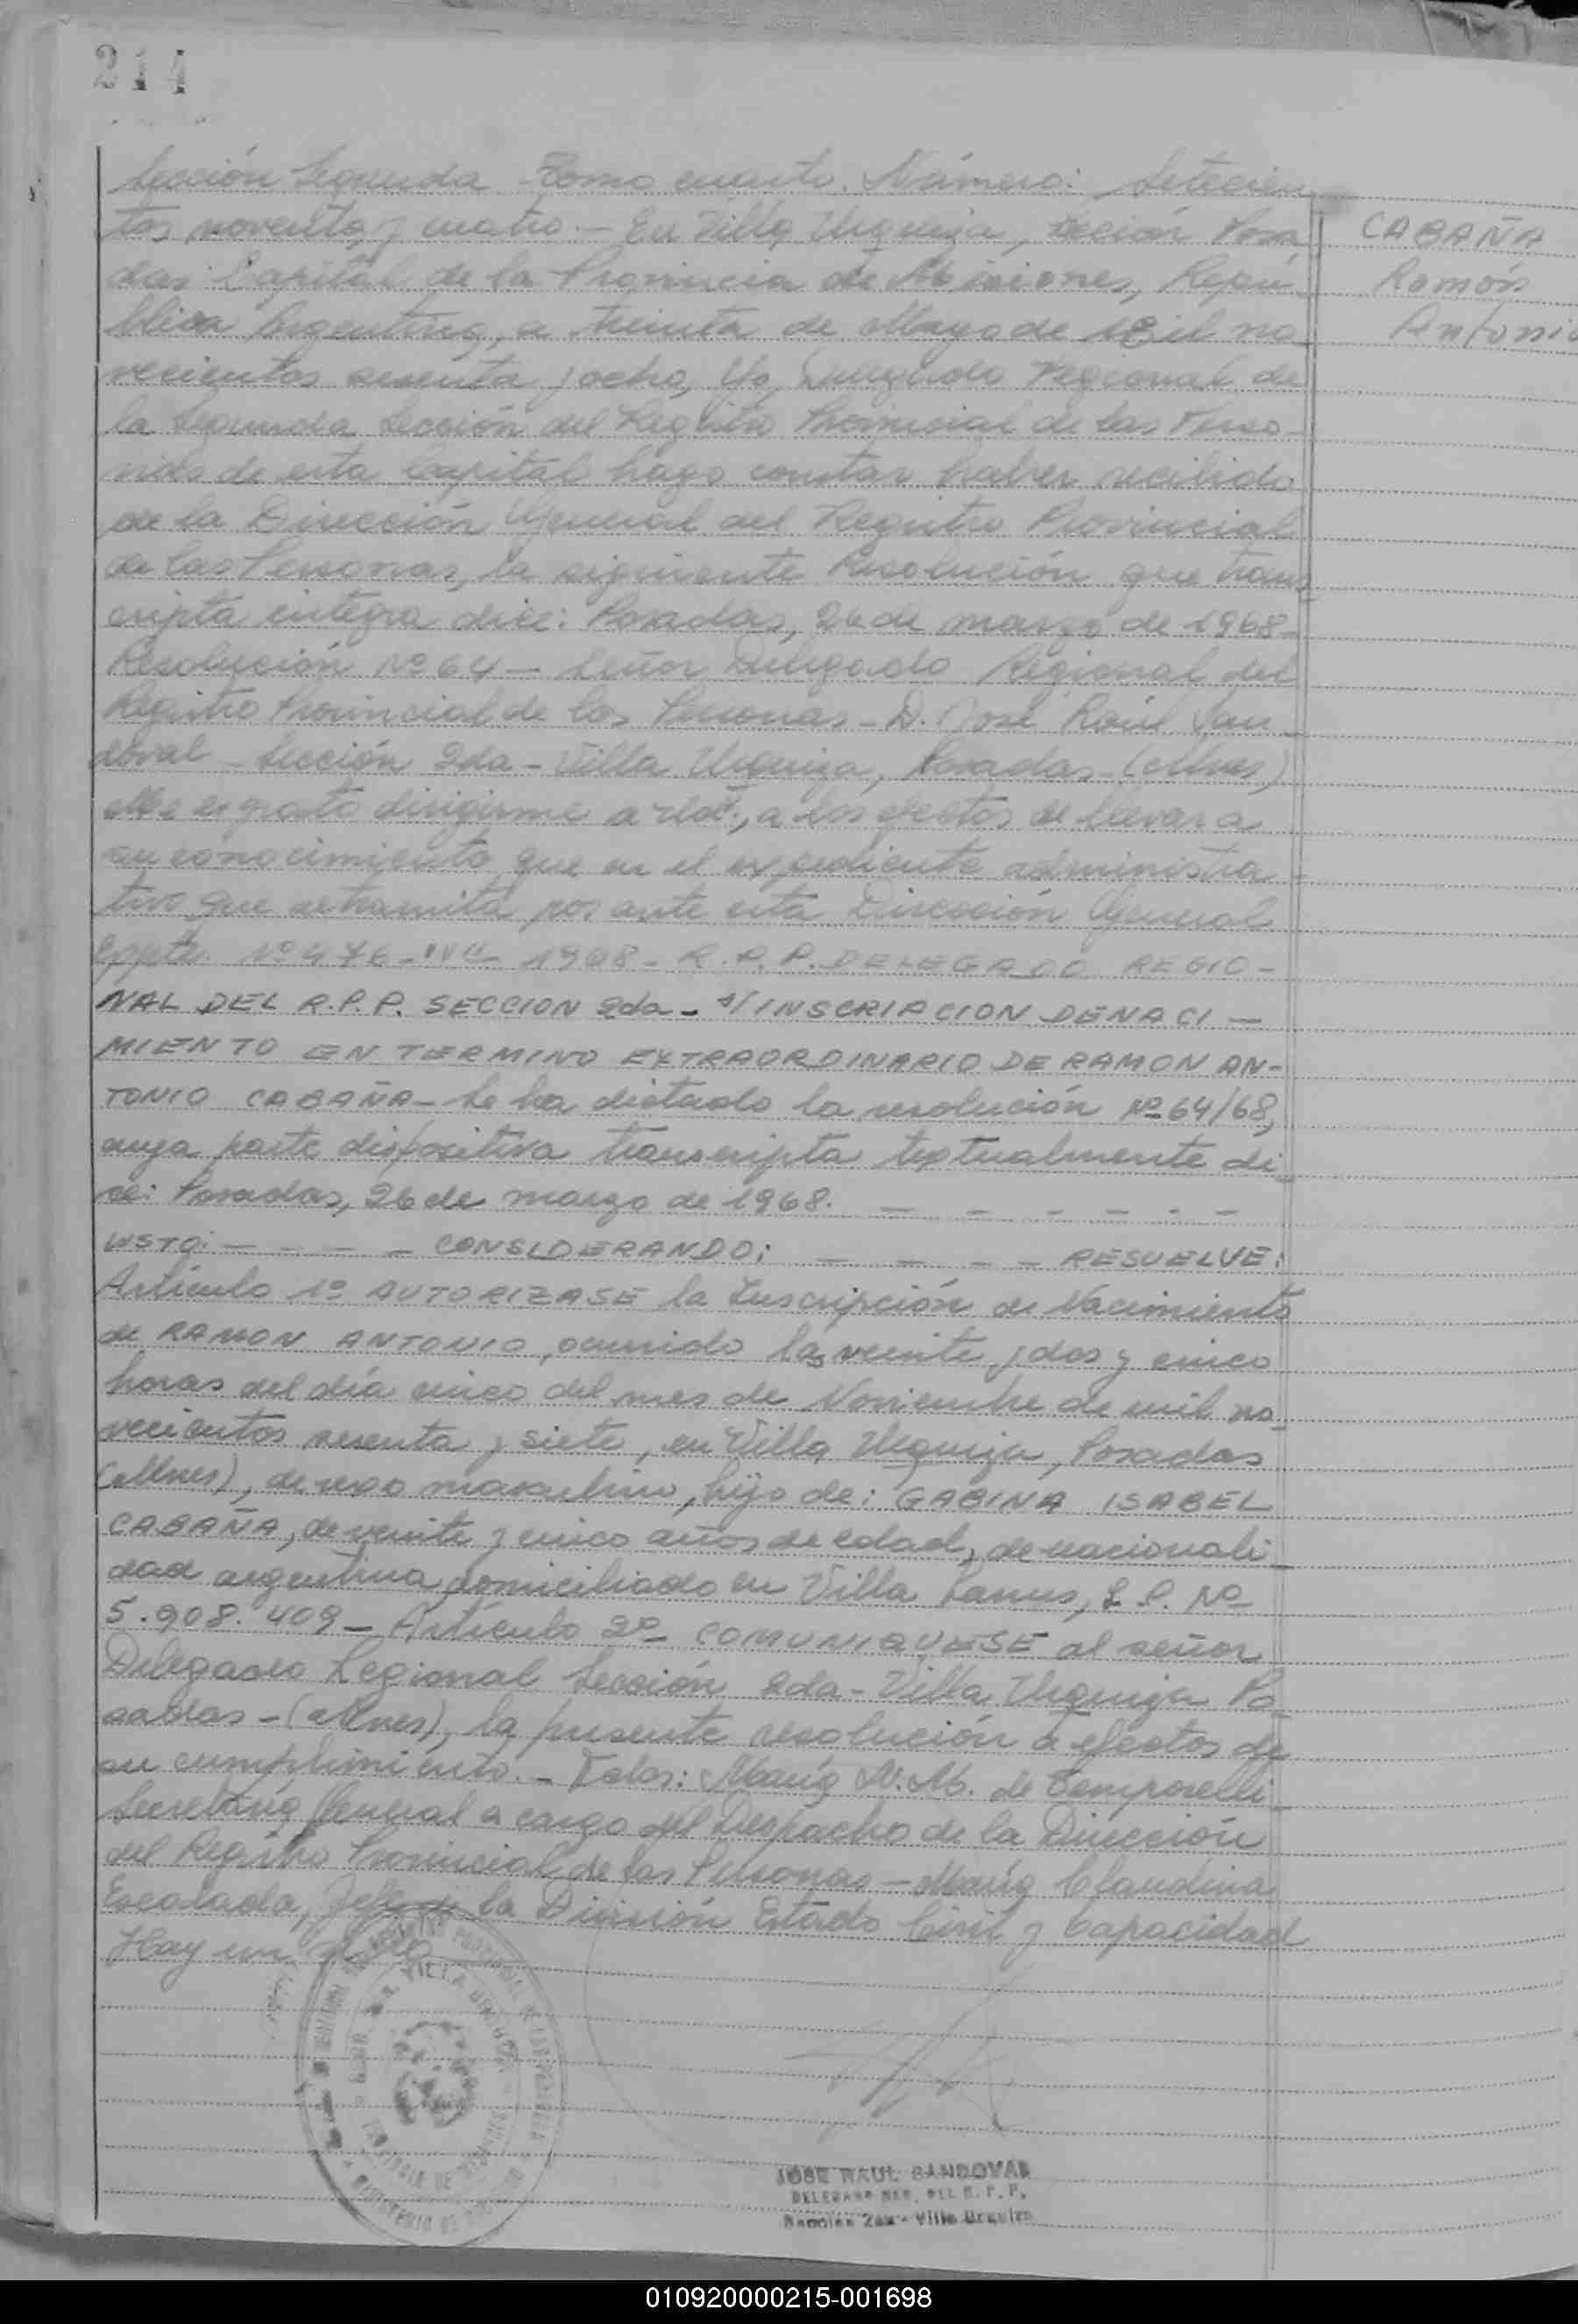 214
Sección Segunda Tomo cuarto. Número: Setecien
tos noventa y cuatro.- En Villa Urquiza, Sección Posa
das Capital de la Provincia de Misiones, Repú
blica Argentina, a treinta de Mayo de Mil no
vecientos sesenta y ocho, Yo, Delegado Regional de
la Segunda Sección del Registro Provincial de las Perso-
nas de esta Capital hago constar haber recibido
de la Dirección General del Registro Provincial
de las Personas, la siguiente Resolución que trans
cripta íntegra dice: Posadas, 26 de marzo de 1968-
Resolución Nº 64 - Señor Delegado Regional del
Registro Provincial de las Personas - D. José Raúl San
doval - Sección 2da - Villa Urquiza, Posadas - (Mnes)
Me es grato dirigirme a Ud., a los efectos de llevar a
su conocimiento que en el expediente administra-
tivo que se tramita por ante esta Dirección General
Nº 476- 1968- R.P.P. DELEGADO REGIO-
NAL DEL R.P.P. SECCION 2da - s/INSCRIPCION DE NACI-
MIENTO EN TERMINO EXTRAORDINARIO DE RAMON AN-
TONIO CABAÑA- Se ha dictado la resolución Nº 64/68,
cuya parte dispositiva transcripta textualmente di
ce: Posadas, 26 de marzo de 1968. - - - - - -
VISTO: - - - - CONSIDERANDO; - - - - RESUELVE:
Artículo 1º AUTORIZASE la Inscripción de Nacimiento
de RAMON ANTONIO, ocurrido las veinte y dos y cinco
horas del día cinco del mes de Noviembre de mil no-
vecientos sesenta y siete, en Villa Urquiza, Posadas
(Mnes), de sexo masculino, hijo de: GABINA ISABEL
CABAÑA, de veinte y cinco años de edad, de nacionali-
dad argentina domiciliado en Villa Lanus, L.C. Nº
5.908.409 - Artículo 2º COMUNIQUESE al señor
Delegado Regional Sección 2da - Villa Urquiza Po-
sadas - (Mnes), la presente resolución a efectos de
su cumplimiento. - Fdos: María N.M. de Temporelli-
Secretaria General a cargo del Despacho de la Dirección
del Registro Provincial de las Personas - María Claudina
Escalada, Jefe de la División Estado Civil y Capacidad
Hay un sello
CABAÑA
Ramón
Antonio
JOSE RAUL SANDOVAL
DELEGADO REG. DEL R.P.P.
Sección 2da - Villa Urquiza
010920000215-001698